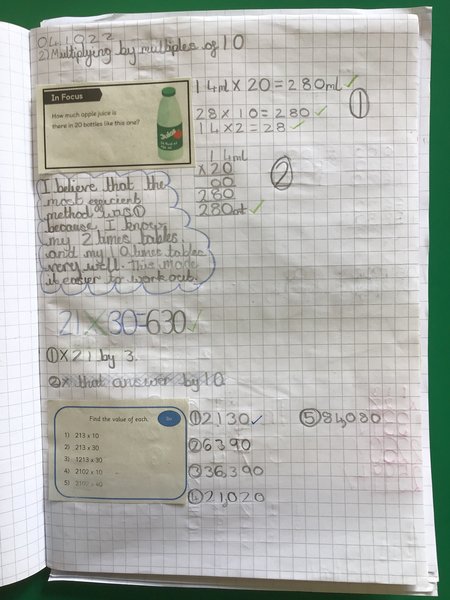 04.10.22
2) Multiplying by multiples of 10
In Focus
How much apple juice is
there in 20 bottles like this one?
Juice
14ml X 20 = 280ml
28 X 10 = 280
14 X 2 = 28
①
14ml
X20
00
280
280ml
②
I believe that the
most efficient
method was ①
because I know
my 2 times tables
and my 10 times tables
very well. This made
it easier to work out.
21 X 30=630
① X 21 by 3.
② X that answer by 10
Find the value of each.
1) 213 x 10
2) 213 x 30
3) 1213 x 30
4) 2102 x 10
5) 2102 x 40
① 2130
② 6390
③ 36,390
④ 21,020
⑤ 84,080